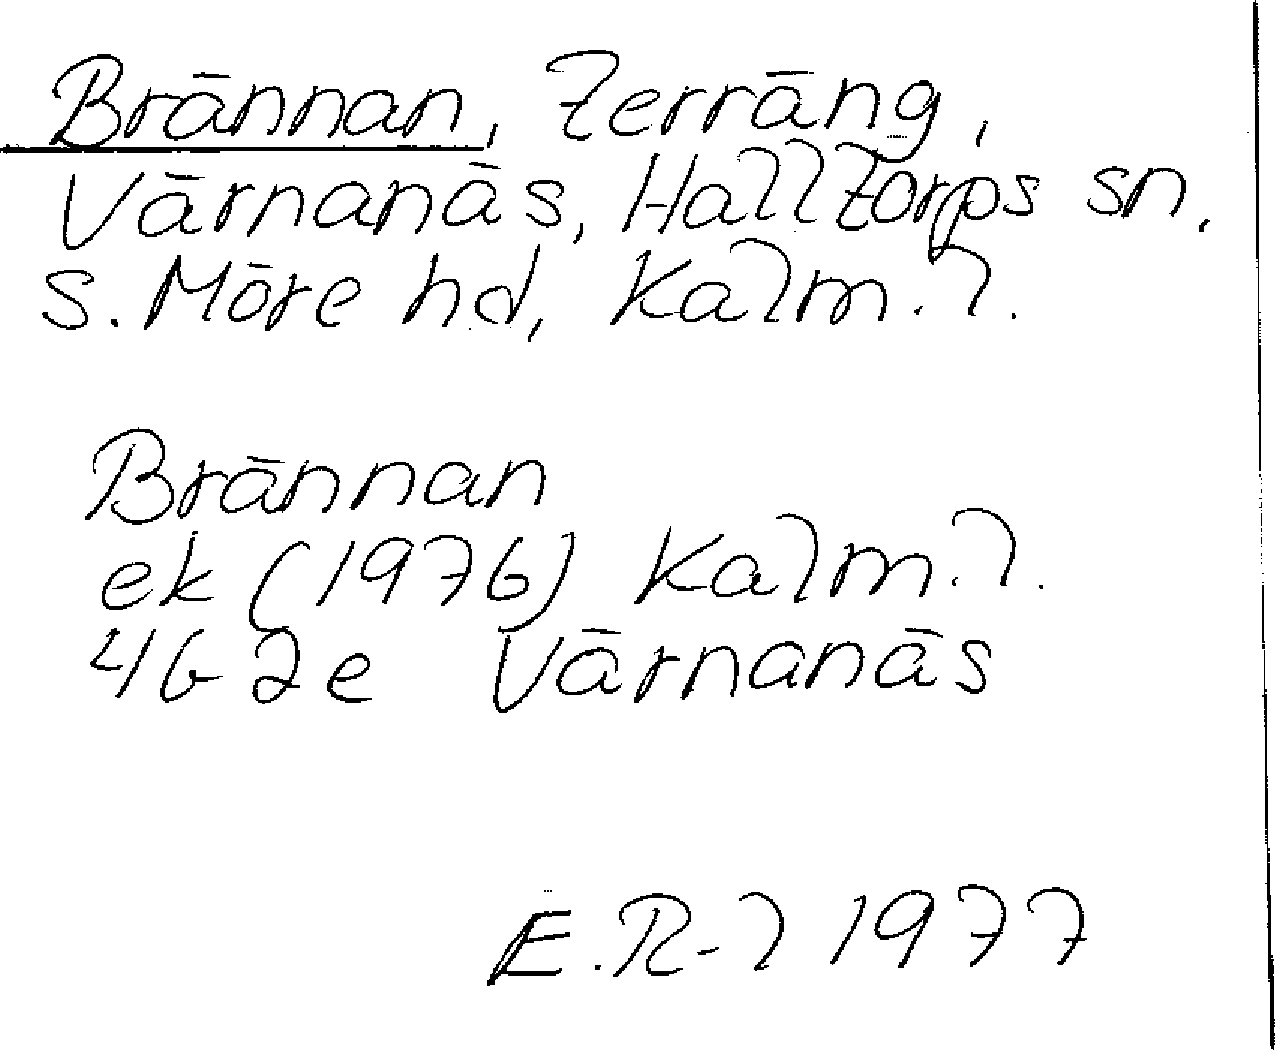 Brännan, Terräng,
Värnanäs, Halltorps sn.
S. Möre hd, Kalm. l.
Brännan
ek (1976) Kalm. l.
4G 2e Värnanäs
E.R-l 1977